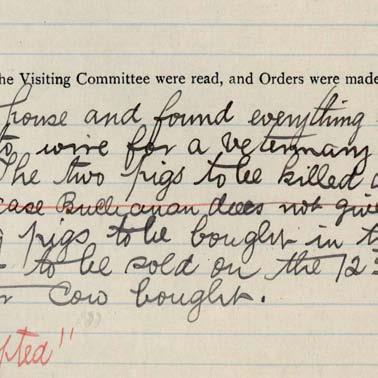 he Visiting Committee were read, and Orders were made
house and found everything
to wire for a vetermary
The two pigs to be killed
case Buchanan does not give
pigs to be bought in
to be sold on the 12
Cow bought.
pted"